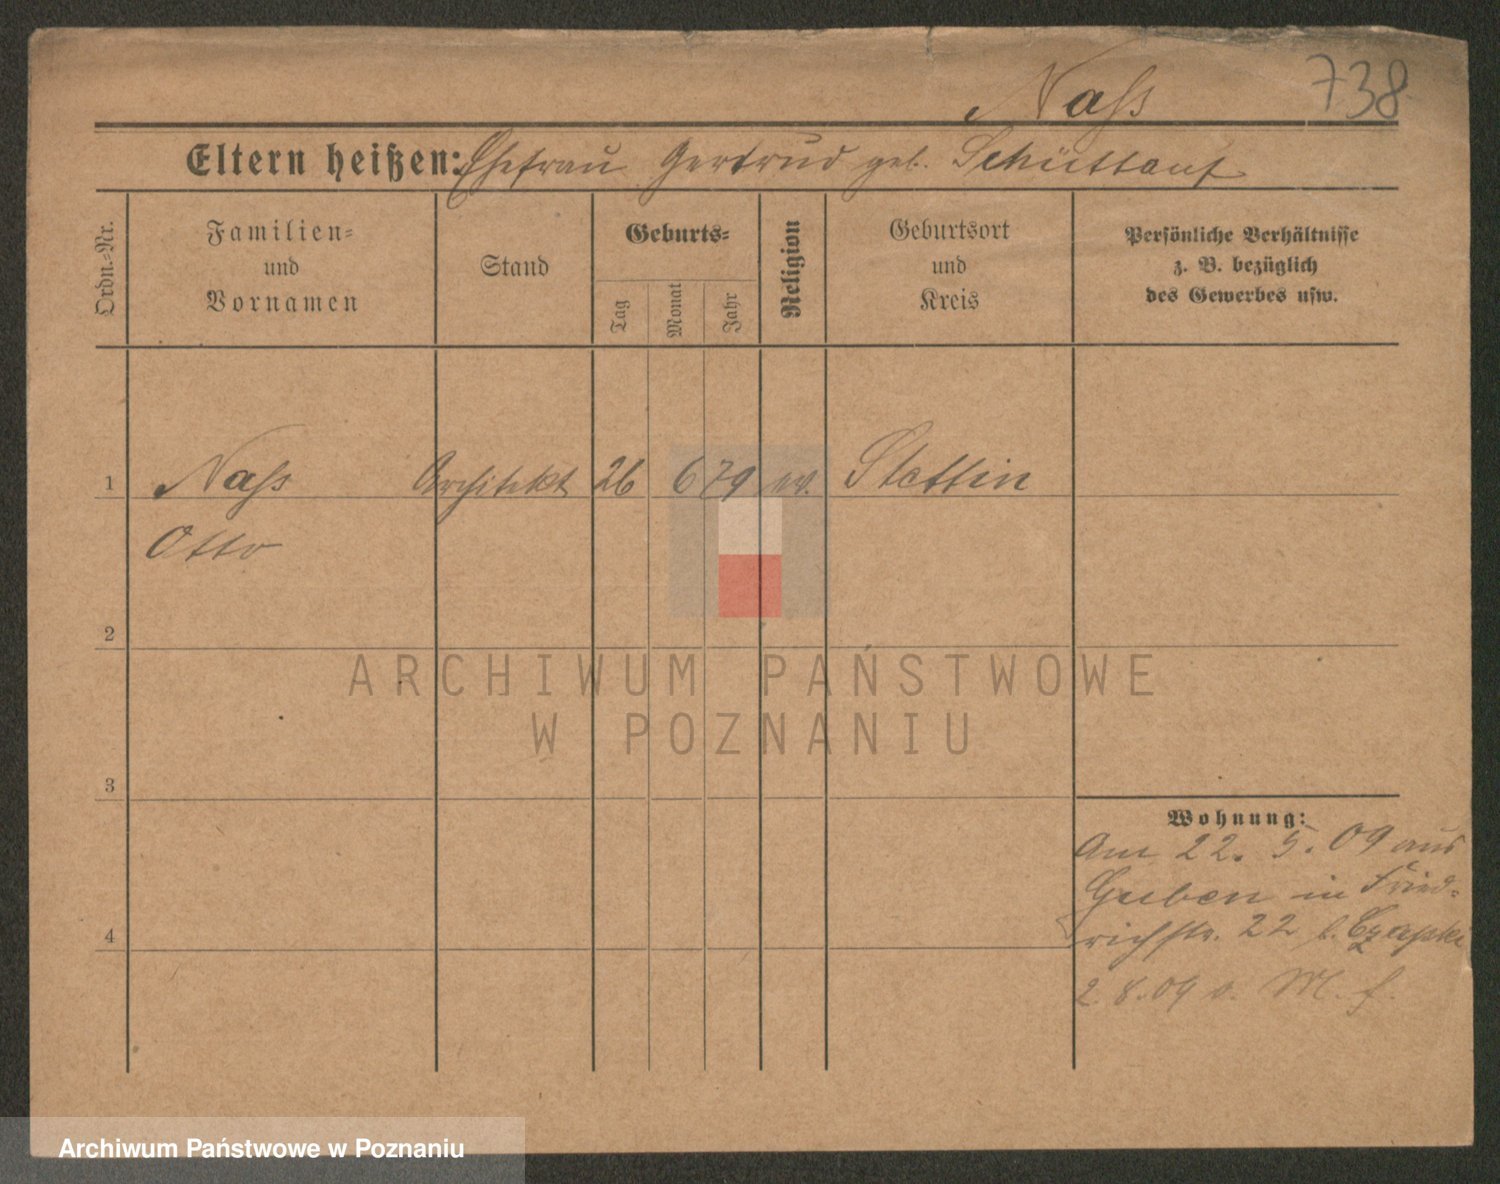 Nass
738
Eltern heißen: Ehefrau Gertrud geb. Schüttauf
Ordn.-Nr.
Familien-
und
Vornamen
Stand
Geburts-
Tag
Monat
Jahr
Religion
Geburtsort
und
Kreis
Persönliche Verhältnisse
z. B. bezüglich
des Gewerbes usw.
1 Nass Architekt 26 6 79 ev. Stettin
Otto
2
3
4
Wohnung:
Am 22. 5. 09 aus
Guben in Fried-
richstr. 22 b. Czapski
2.8.09 n. M. f.
ARCHIWUM PAŃSTWOWE
W POZNANIU
Archiwum Państwowe w Poznaniu